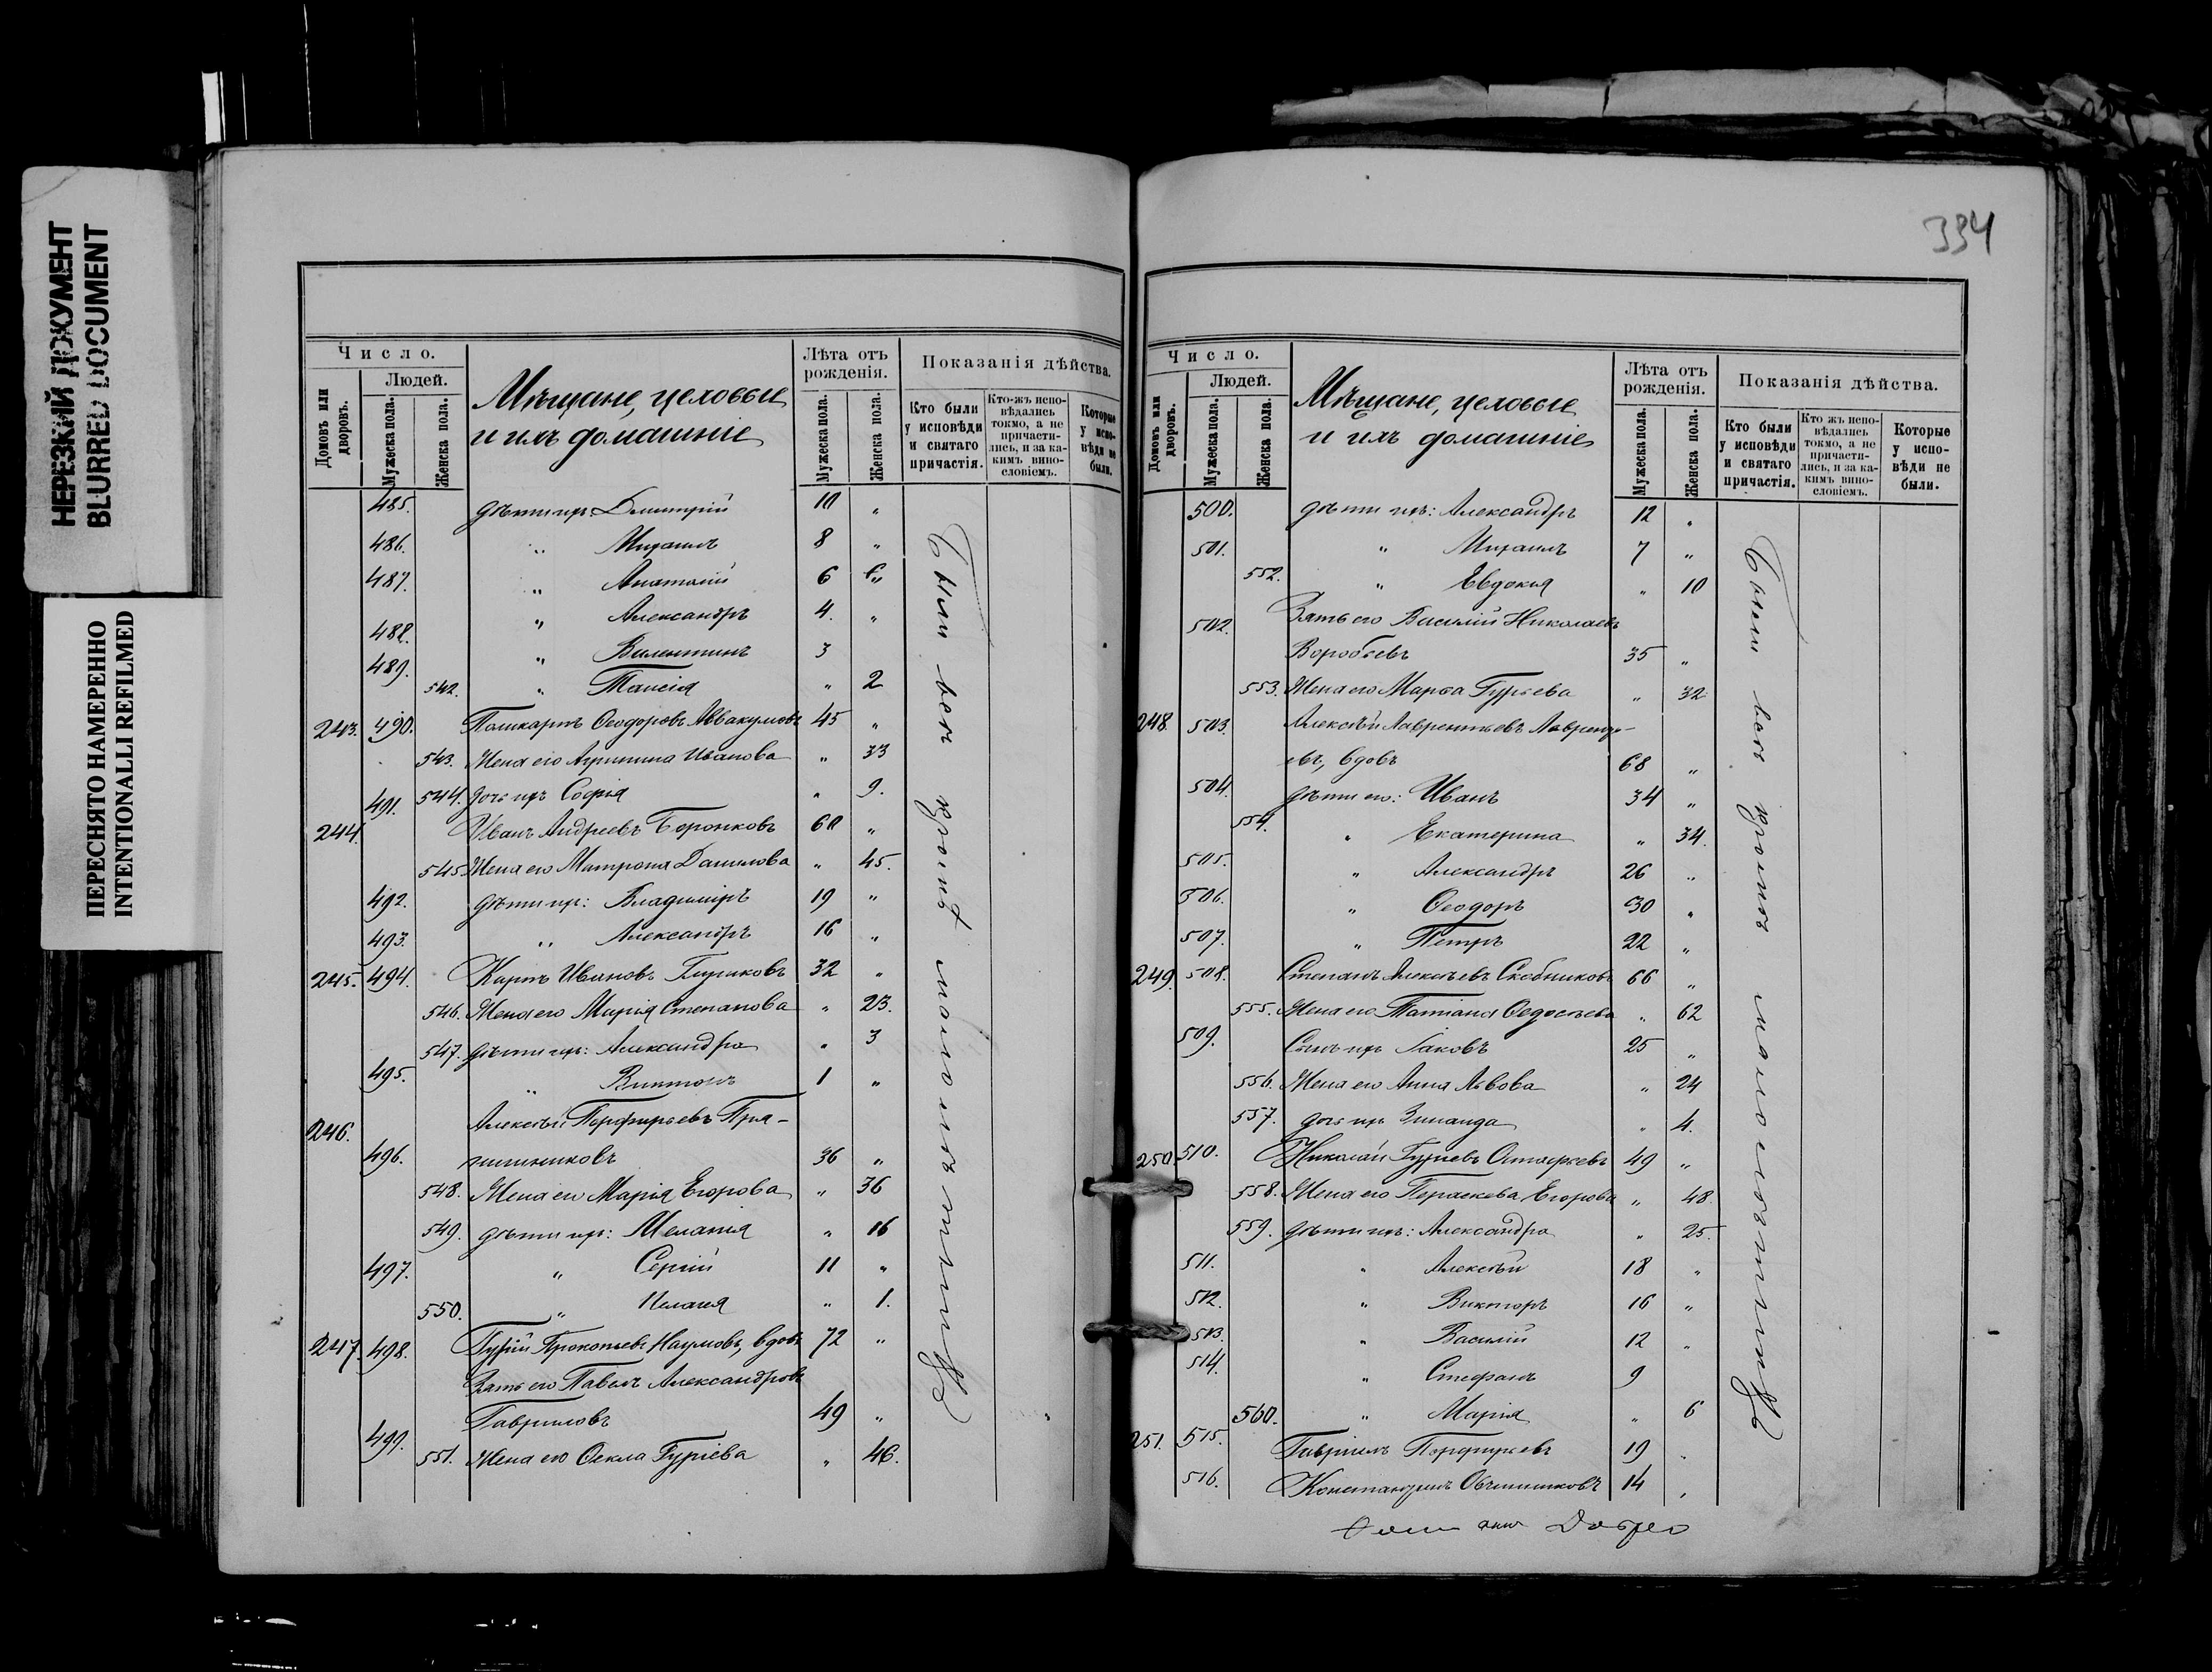 НЕРЕЗКИЙ ДОКУМЕНТ
BLURRED DOCUMENT
ПЕРЕСНЯТО НАМЕРЕННО
INTENTIONALLI REFILMED
Число.
Домовъ или дворовъ.
Людей.
Мужеска пола.
Женска пола.
Мѣщане, цеховые
и ихъ домашніе
Лѣта отъ рожденія.
Мужеска пола.
Женска пола.
Показанія дѣйства.
Кто были у исповѣди и святаго причастія.
Кто-жъ исповѣдались токмо, а не причастились, и за какимъ винословіемъ.
Которые у исповѣди не были.
485. дѣти ихъ: Димитрій 10 "
486. " Михаилъ 8 "
487. " Анатолій 6 "
488. " Александръ 4. "
489. " Валентинъ 3
542. " Таисія " 2
243. 490. Поликарпъ Ѳеодоровъ Аввакумовъ 45 "
543. Жена его Агрипина Иванова " 33
491. 544. дочь ихъ Софія " 9.
244. Иванъ Андреевъ Боронковъ 60 "
545 Жена его Матрона Данилова " 45.
492. дѣти ихъ: Владиміръ 19 "
493. " Александръ 16 "
245. 494. Карпъ Ивановъ 32 "
546. Жена его Марія Степанова " 23.
547. дѣти ихъ: Александра " 3
495. " 1 "
246. Алексѣй Порфирьевъ Пря-
496. нишниковъ 36 "
548. Жена его Марія Егорова " 36
549. дѣти ихъ: Меланія " 16
497. " Сергій 11 "
550. " Пелагія " 1.
247. 498. Гурій Прокопьевъ Наумовъ, вдовъ 72 "
Зять его Павелъ Александровъ
499. Гавриловъ 49 "
551. Жена его Ѳекла Гуріева " 46.
Были всѣ кромѣ малолѣтнихъ
394
Число.
Домовъ или дворовъ.
Людей.
Мужеска пола.
Женска пола.
Мѣщане, цеховые
и ихъ домашніе
Лѣта отъ рожденія.
Мужеска пола.
Женска пола.
Показанія дѣйства.
Кто были у исповѣди и святаго причастія.
Кто жъ исповѣдались токмо, а не причастились, и за какимъ винословіемъ.
Которые у исповѣди не были.
500. дѣти ихъ: Александръ 12 "
501. " Михаилъ 7 "
552. " Евдокія " 10
502. Зять его Василій Николаевъ
Воробьевъ 35 "
553. Жена его Марѳа Гурьева " 32
248 503. Алексѣй Лаврентьевъ Лавренть-
евъ, вдовъ 68 "
504. дѣти его: Иванъ 34 "
554. " Екатерина " 34.
505. " Александръ 26 "
506. " Ѳеодоръ 30 "
507. " Петръ 22 "
249. 508. Степанъ Алексѣевъ Скобниковъ 66 "
555. Жена его Татіана Ѳедосѣева " 62
509. Сынъ ихъ Іаковъ 25 "
556. Жена его Анна Львова " 24
557. дочь ихъ Зинаида " 4.
250. 510. Николай Гурьевъ 49 "
558. Жена его Параскева Егорова " 48.
559. дѣти ихъ: Александра " 25.
511. " Алексѣй 18 "
512. " Викторъ 16 "
513. " Василій 12 "
514. " Стефанъ 9
560. " Марія " 6
251. 515. Гавріилъ Порфирьевъ 19 "
516. Константинъ Овчинниковъ 14 "
Были всѣ кромѣ малолѣтнихъ